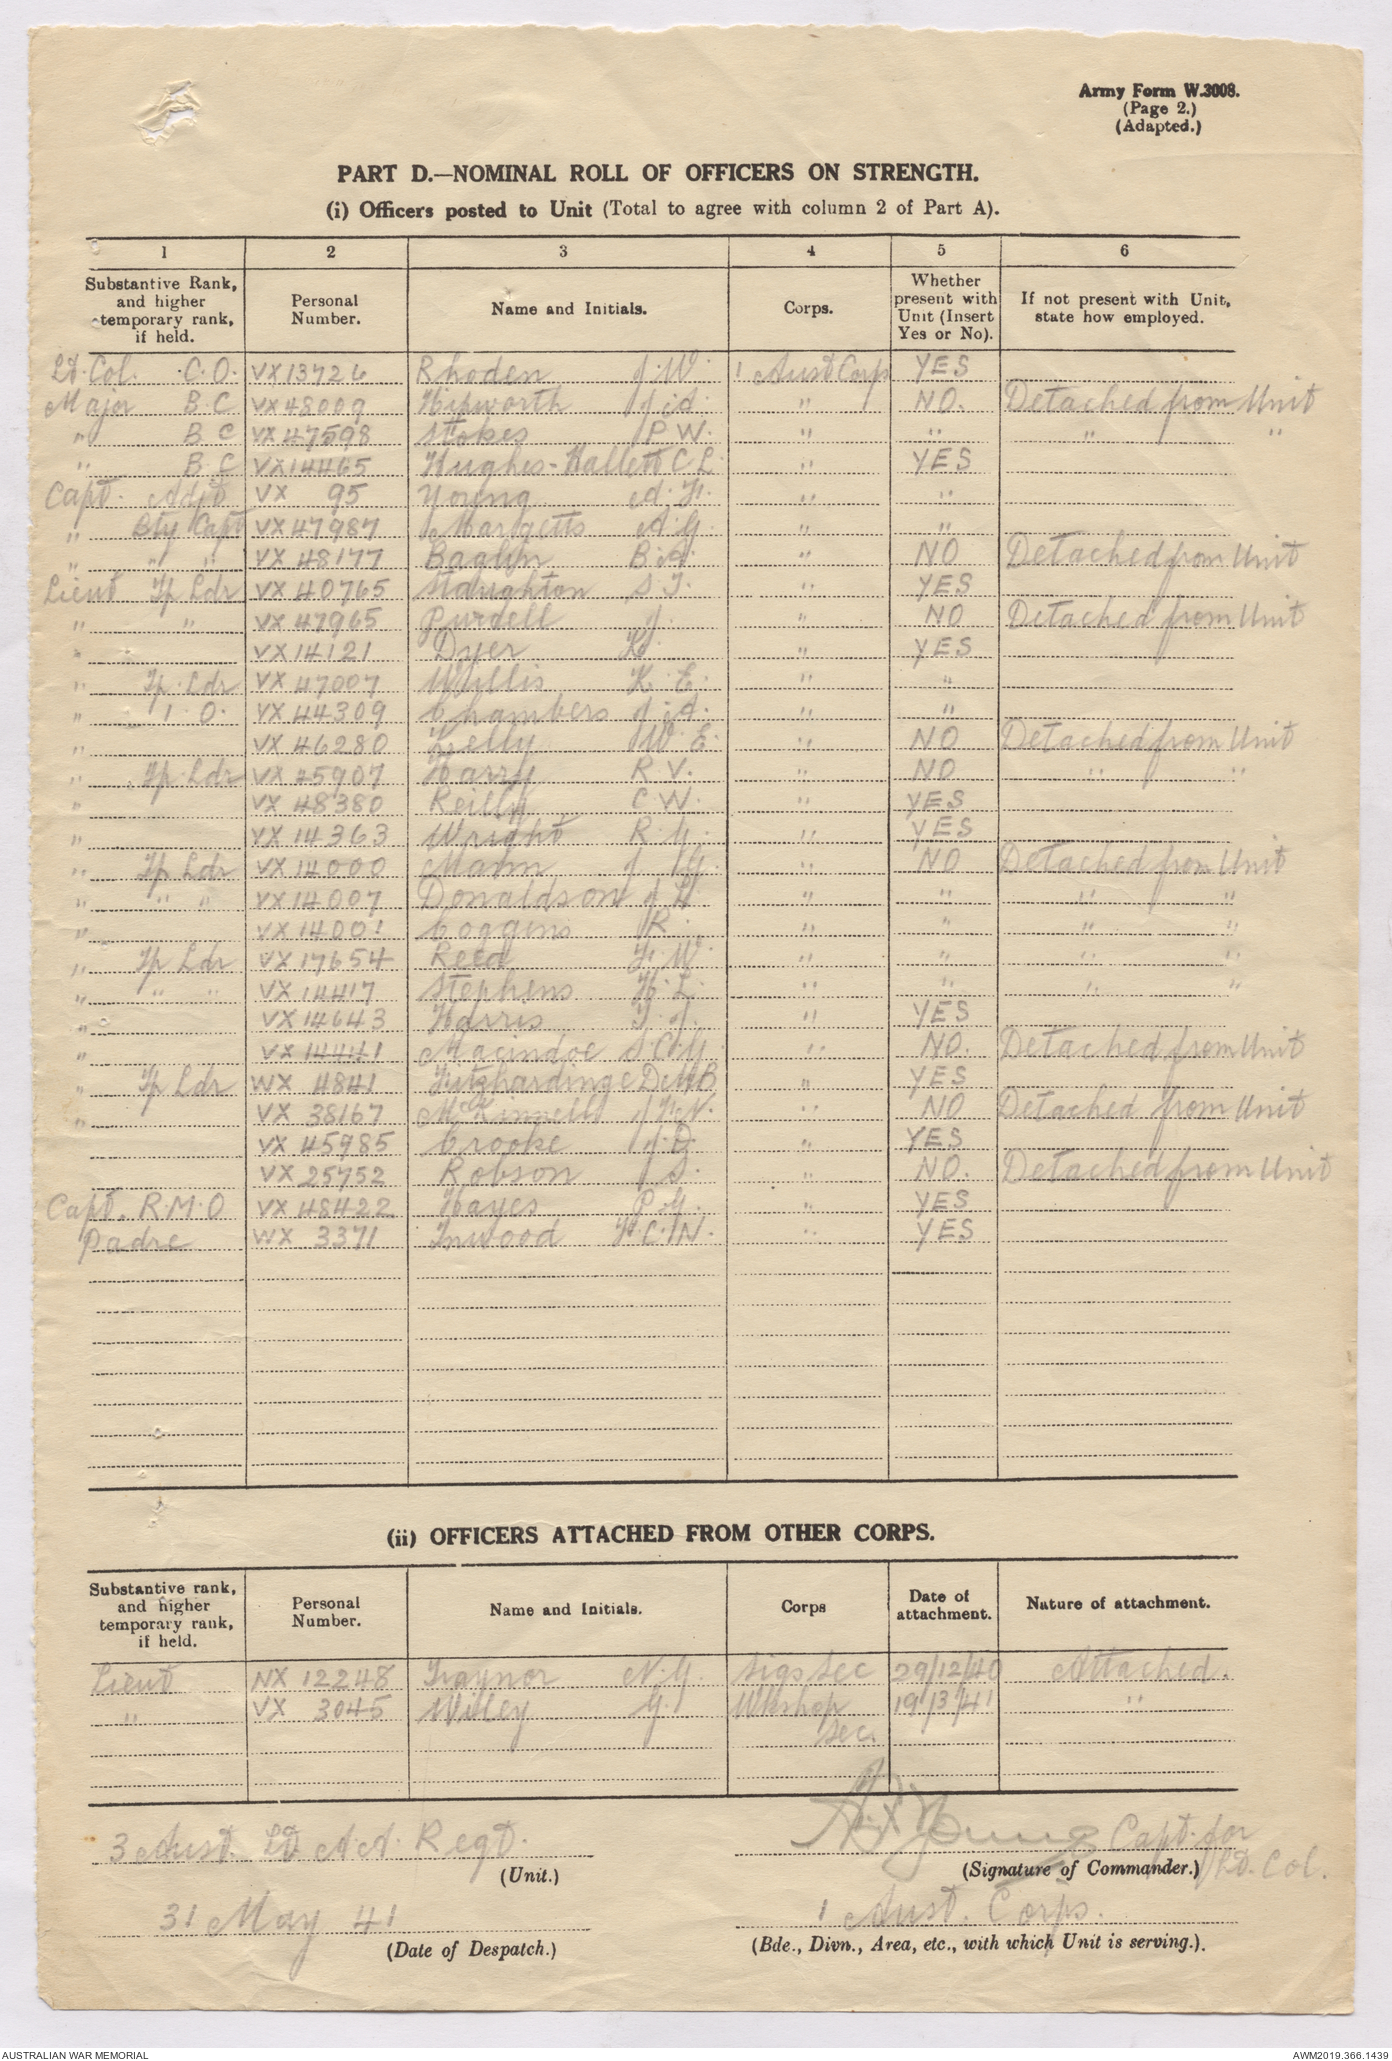 Army Form W.3008.
(Page 2.)
(Adapted.)
PART D.—NOMINAL ROLL OF OFFICERS ON STRENGTH.
(i) Officers posted to Unit (Total to agree with column 2 of Part A).
1 2 3 4 5 6
Substantive Rank, and higher temporary rank, if held. Personal Number. Name and Initials. Corps. Whether present with Unit (Insert Yes or No). If not present with Unit, state how employed.
Lt. Col. C.O. VX 13726 Rhoden J.W. 1 Aust Corps YES
Major B.C VX 48009 Hipworth J.A. " NO. Detached from Unit
" B C VX 47598 Stokes P W. " " " "
" B.C VX 14465 Hughes-Hallett C L. " YES
Capt. Adjt VX 95 Young A. F. " "
" Bty Capt VX 47987 Margetts A.G. " "
" " " VX 48177 Baglin B.A. " NO Detached from Unit
Lieut Tp Ldr VX 40765 Staughton S T. " YES
" " VX 47965 Purdell J. " NO Detached from Unit
" VX 14121 Dyer K. " YES
Tp. Ldr VX 47007 Wyllis K. E. " "
" I. O. VX 44309 Chambers J.A. " "
" VX 46280 Kelly W. E. " NO Detached from Unit
" Tp. Ldr VX 45907 Harry R. V. " NO " "
" VX 48380 Reilly C W. " YES
" VX 14363 Wright R. G. " YES
" Tp Ldr VX 14000 Mann J. G. " NO Detached from Unit
" " " VX 14007 Donaldson J. H. " " " "
" VX 14001 Coggins R. " " " "
" Tp Ldr VX 17654 Reed F. W. " " " "
" " " VX 14417 Stephens H. L. " " " "
" VX 14643 Harris T. J. " YES
" VX 14441 Macindoe S.C.G. " NO. Detached from Unit
" Tp Ldr WX 4841 Fitzhardinge D.M.B " YES
" VX 38167 McKinnell J.F.N. " NO Detached from Unit
VX 45985 Crooke J. D. " YES
VX 25752 Robson J S. " NO. Detached from Unit
Capt. R.M.O VX 48422 Hayes P. G. " YES
Padre WX 3371 Inwood F.C.N. " YES
(ii) OFFICERS ATTACHED FROM OTHER CORPS.
Substantive rank, and higher temporary rank, if held. Personal Number. Name and Initials. Corps Date of attachment. Nature of attachment.
Lieut NX 12248 Traynor N.G. Sigs Sec 29/12/40 Attached.
" VX 3045 Willey G. Wkshop Sec. 19/3/41 "
3 Aust. Lt. A.A. Regt. A F Young Capt. for Lt. Col.
(Unit.) (Signature of Commander.)
31 May 41 1 Aust. Corps.
(Date of Despatch.) (Bde., Divn., Area, etc., with which Unit is serving.).
AUSTRALIAN WAR MEMORIAL AWM2019.366.1439